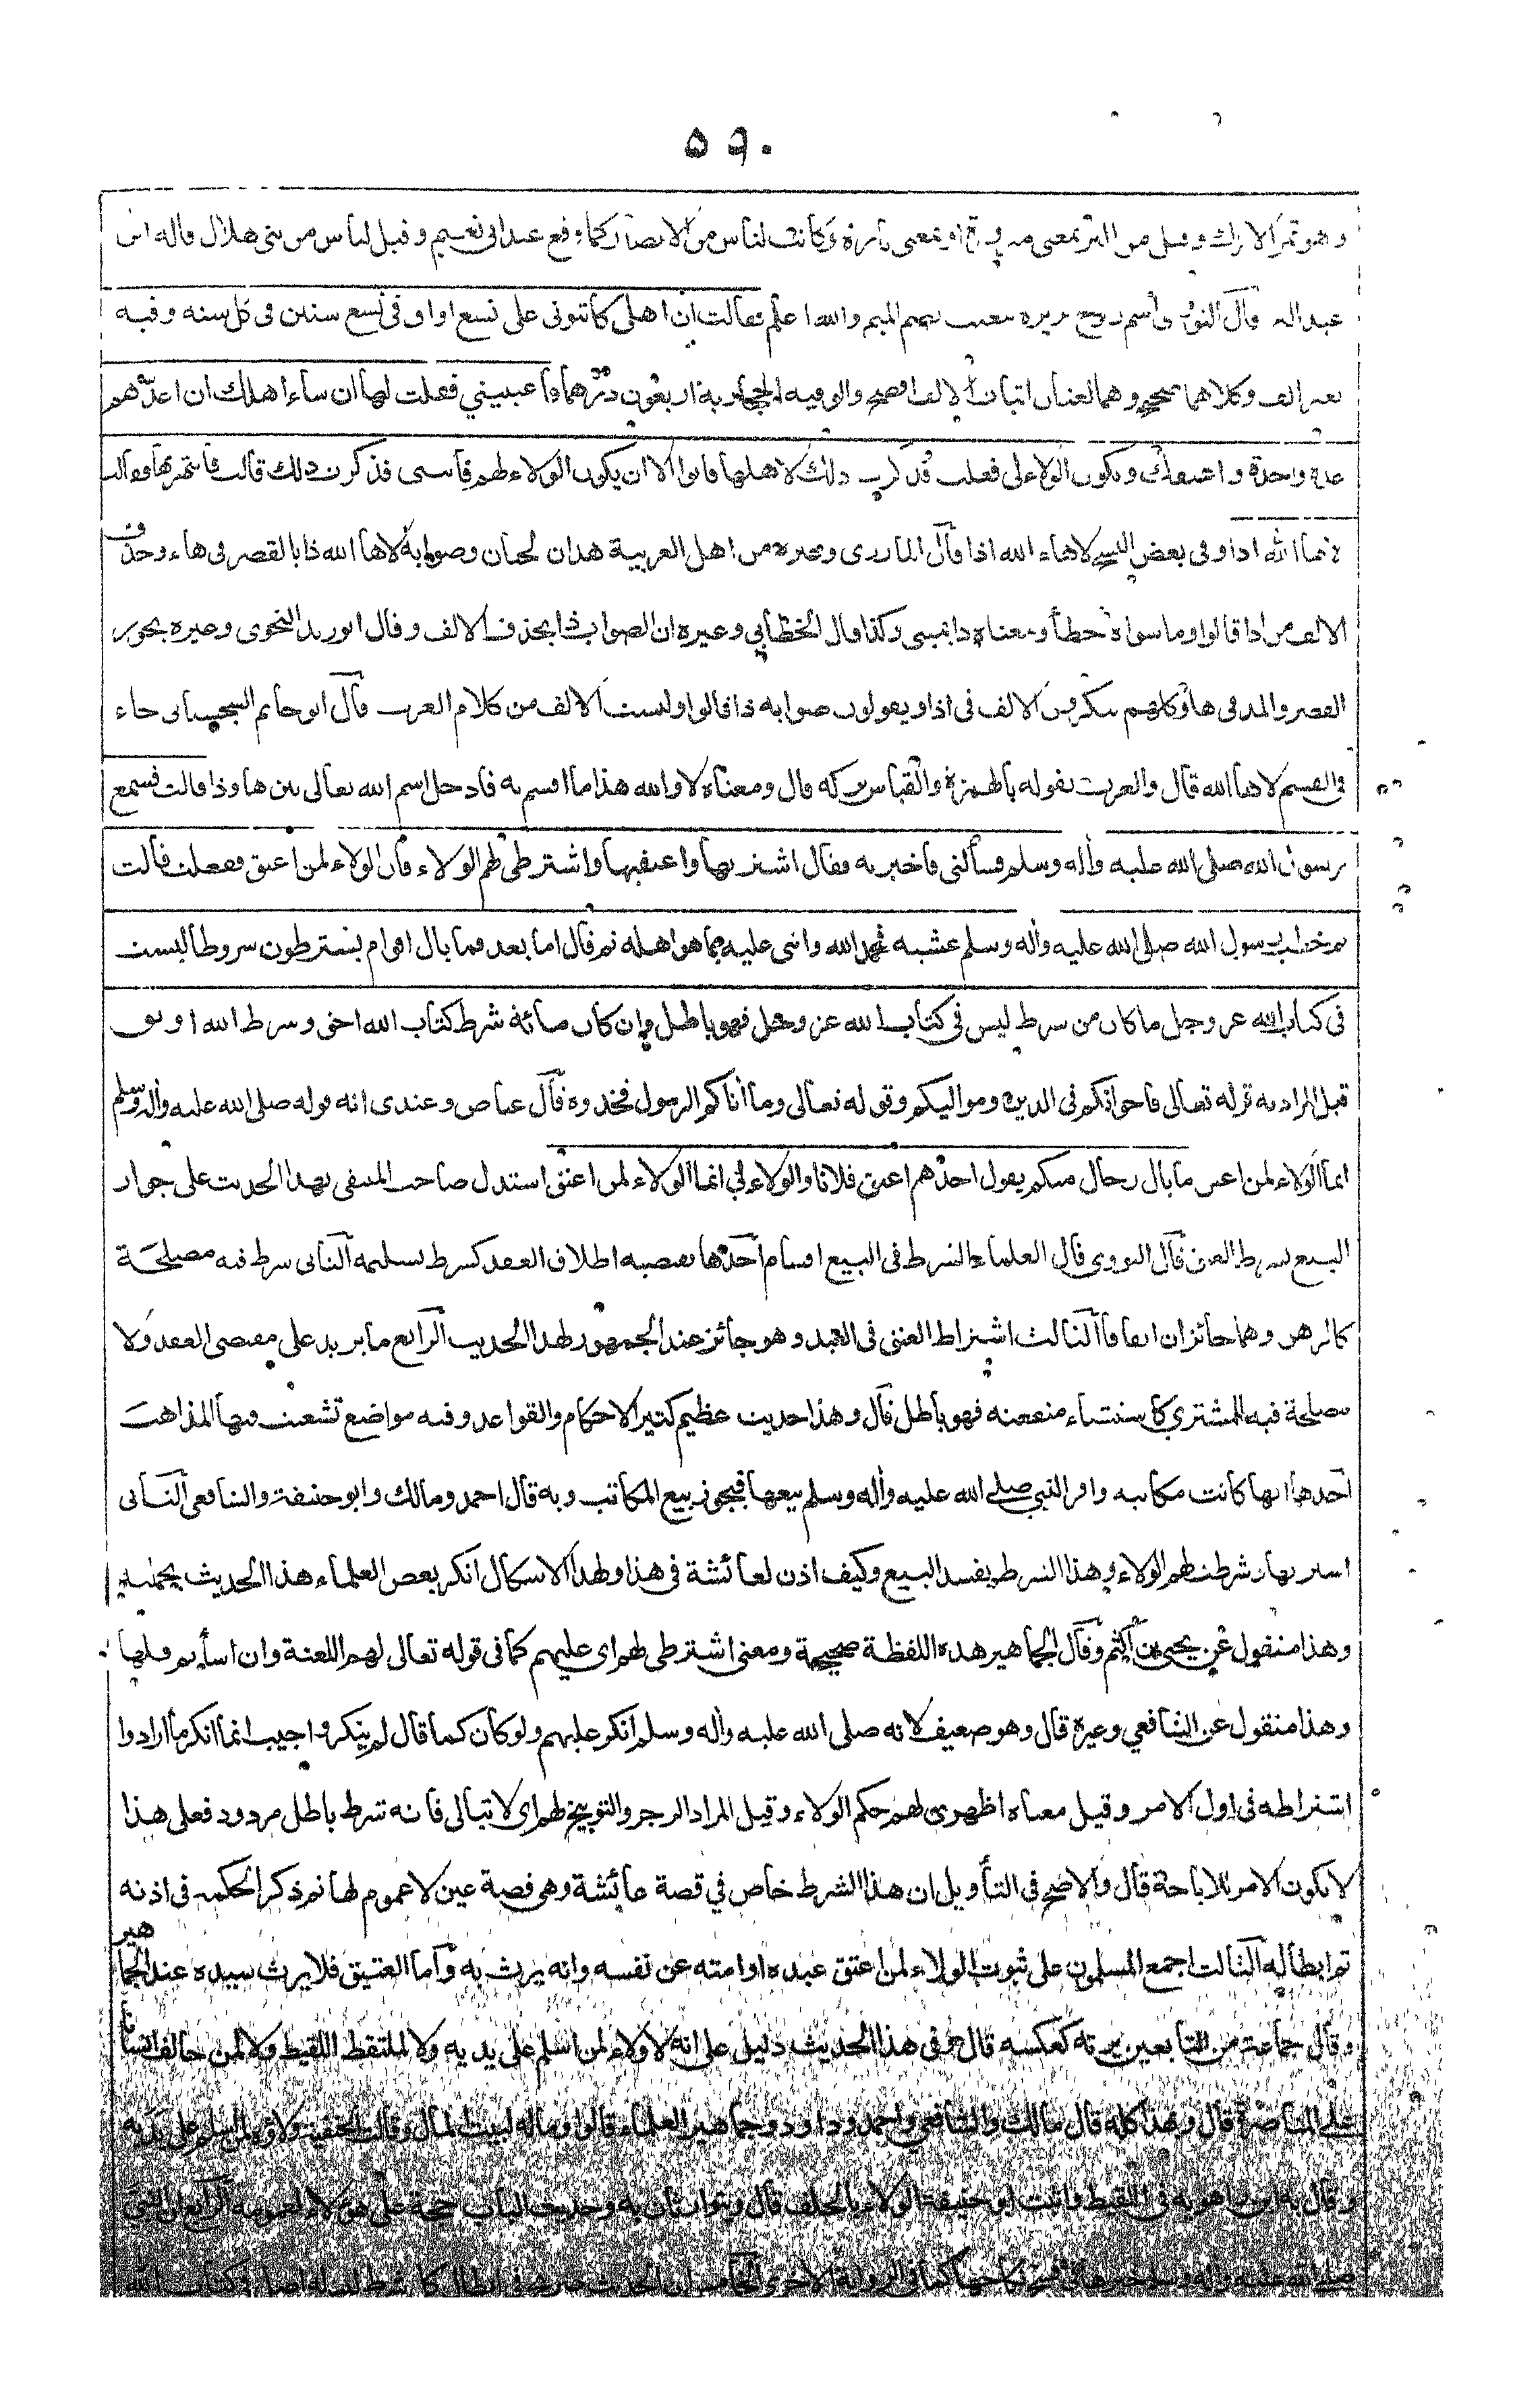 ٥٩٠
وهو ثمر الاراك وقيل من البر بمعنى مبرورة او بمعنى بارة وكانت لناس من الانصار كما وقع عند ابى نعيم وقيل لناس من بنى هلال قاله ابن
عبد البر قال النووى اسم زوج بريرة مغيث بضم الميم والله اعلم فقالت ان اهلى كاتبونى على تسع اواق فى تسع سنين فى كل سنة وقية
بغير الف وكلاهما صحيح وهما لغتان اثبات الالف افصح والوقية الحجازية اربعون درهما فاعينيني فقلت لها ان شاء اهلك ان اعدها لهم
عدة واحدة واعتقك ويكون الولاء لى فعلت فذكرت ذلك لاهلها فابوا الا ان يكون الولاء لهم فاتتنى فذكرت ذلك قالت فانتهرتها فقالت
لا ها الله اذا وفى بعض النسخ لاهاء الله اذا قال المازرى وغيره من اهل العربية هذان لحنان وصوابه لاها الله ذا بالقصر فى هاء وحذف
الالف من اذا قالوا وما سواه خطأ ومعناه ذا يمينى وكذا قال الخطابي وغيره ان الصواب ذا بحذف الالف وقال ابو زيد النحوى وغيره يجوز
القصر والمد فى ها وكلهم ينكرون الالف فى اذا ويقولون صوابه ذا قالوا وليست الالف من كلام العرب قال ابو حاتم السجستانى جاء
فى القسم لاها الله قال والعرب تقوله بالهمزة والقياس تركه قال ومعناه لا والله هذا ما اقسم به فادخل اسم الله تعالى بين ها وذا قالت فسمع
رسول الله صلى الله عليه واله وسلم فسألنى فاخبرته فقال اشتريها واعتقيها واشترطى لهم الولاء فان الولاء لمن اعتق ففعلت قالت
ثم خطب رسول الله صلى الله عليه واله وسلم عشية فحمد الله واثنى عليه بما هو اهله ثم قال اما بعد فما بال اقوام يشترطون شروطا ليست
فى كتاب الله عز وجل ما كان من شرط ليس فى كتاب الله عز وجل فهو باطل وان كان مائة شرط كتاب الله احق وشرط الله اوثق
قيل المراد به قوله تعالى فاخوانكم فى الدين ومواليكم وقوله تعالى وما أتاكم الرسول فخذوه قال عياض وعندى انه قوله صلى الله عليه واله وسلم
انما الولاء لمن اعتق ما بال رجال منكم يقول احدهم اعتق فلانا والولاء لى انما الولاء لمن اعتق استدل صاحب المنتقى بهذا الحديث على جواز
البيع بشرط العتق قال النووى قال العلماء الشرط فى البيع اقسام احدها يقتضيه اطلاق العقد كشرط تسليمه الثانى شرط فيه مصلحة
كالرهن وهما جائزان اتفاقا الثالث اشتراط العتق فى العبد وهو جائز عند الجمهور لهذا الحديث الرابع ما يزيد على مقتضى العقد ولا
مصلحة فيه للمشتري كاستثناء منفعته فهو باطل قال وهذا حديث عظيم كثير الاحكام والقواعد وفيه مواضع تشعبت فيها المذاهب
احدها انها كانت مكاتبه واقر النبي صلى الله عليه واله وسلم بيعها فيجوز بيع المكاتب وبه قال احمد ومالك وابو حنيفة والشافعى الثانى
اشتريها وشرطت لهم الولاء وهذا الشرط يفسد البيع وكيف اذن لعائشة فى هذا ولهذا الاشكال انكر بعض العلماء هذا الحديث بجملته
وهذا منقول عن يحيى بن اكثم وقال الجماهير هذه اللفظة صحيحة ومعنى اشترطى لهم اى عليهم كما فى قوله تعالى لهم اللعنة وان اسأتم فلها
وهذا منقول عن الشافعي وغيره قال وهو ضعيف لانه صلى الله عليه واله وسلم انكر عليهم ولو كان كما قال لم ينكر واجيب انما انكر ما ارادوا
اشتراطه فى اول الامر وقيل معناه اظهرى لهم حكم الولاء وقيل المراد الزجر والتوبيخ لهم اى لا تبالى فانه شرط باطل مردود فعلى هذا
لا تكون الامر للاباحة قال والاصح فى التأويل ان هذا الشرط خاص في قصة عائشة وهى قضية عين لا عموم لها ثم ذكر الحكمة فى اذنه
ثم ابطاله الثالث اجمع المسلمون على ثبوت الولاء لمن اعتق عبده او امته عن نفسه وانه يرث به واما العتيق فلا يرث سيده عند الجماهير
وقال جماعة من التابعين يرثه كعكسه قال وفى هذا الحديث دليل على انه لا ولاء لمن اسلم على يديه ولا لملتقط اللقيط ولا لمن حالف انسانا
على المناصرة قال وبهذا كله قال مالك والشافعي واحمد وداود وجماهير العلماء قالوا وماله لبيت المال وقالت الحنفية ولاؤه لمن اسلم على يديه
وقال به ابن راهويه فى اللقيط واثبت ابو حنيفة الولاء بالحلف قال ويتوارثان به وحديث الباب حجة على هؤلاء لعمومه الرابع ان النبي
صلى الله عليه واله وسلم خيرها فى فسخ نكاحها كما فى الرواية الاخرى الخامس ان الحديث صريح فى ابطال كل شرط ليس له اصل فى كتاب الله